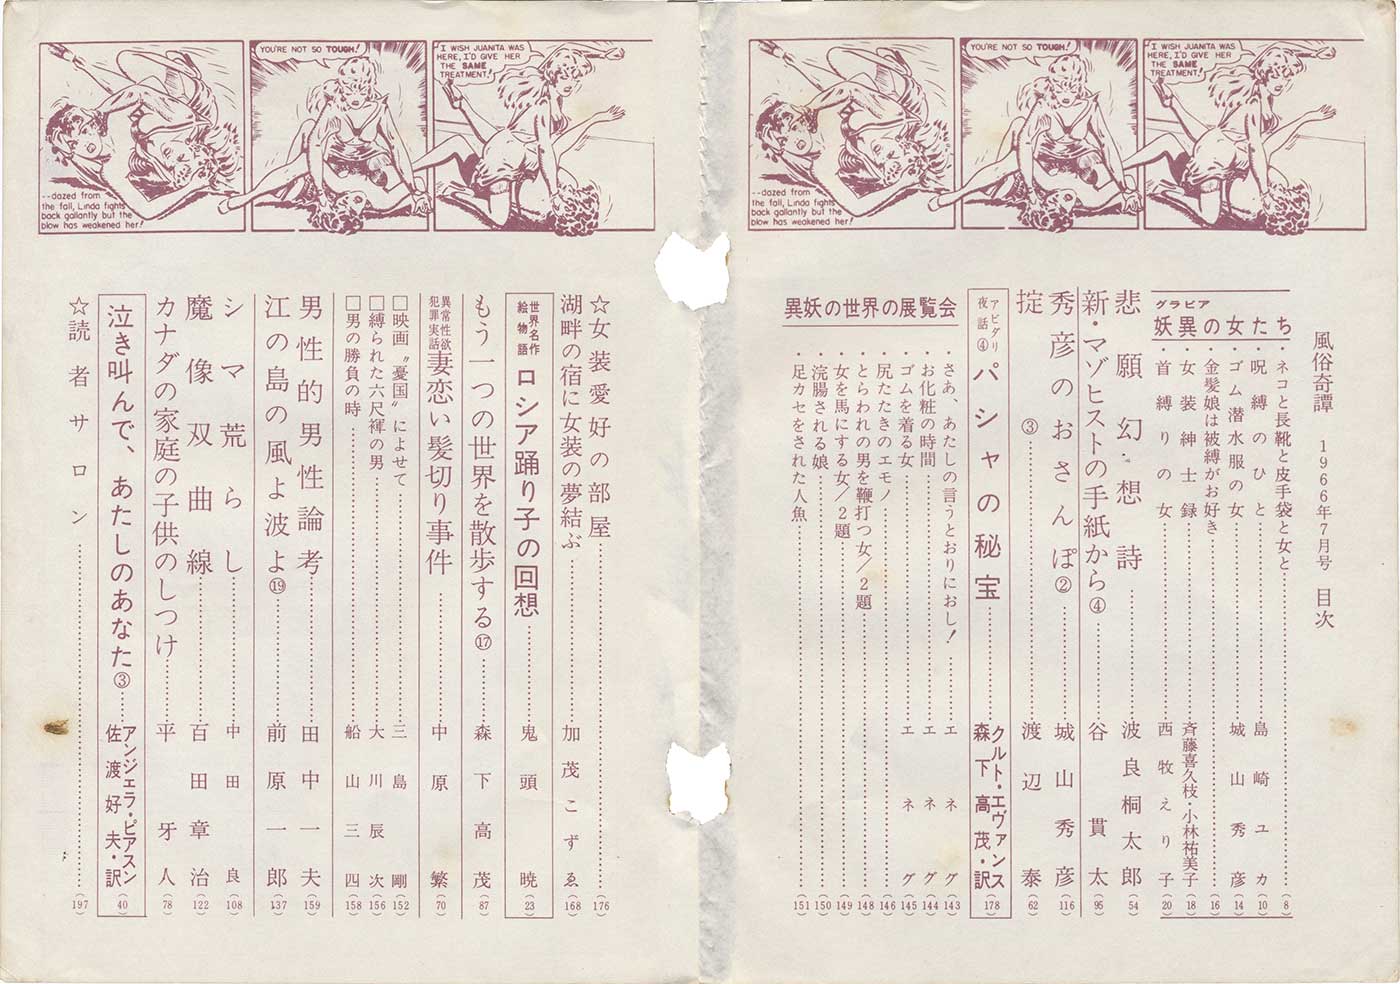 --dazed from
the fall, Linda fights
back gallantly but the
blow has weakened her!
YOU'RE NOT SO TOUGH!
I WISH JUANITA WAS
HERE, I'D GIVE HER
THE SAME
TREATMENT!
--dazed from
the fall, Linda fights
back gallantly but the
blow has weakened her!
YOU'RE NOT SO TOUGH!
I WISH JUANITA WAS
HERE, I'D GIVE HER
THE SAME
TREATMENT!
風俗奇譚 1966年7月号 目次
グラビア
妖異の女たち
・ネコと長靴と皮手袋と女と……(8)
・呪縛のひと……島崎ユカ(10)
・ゴム潜水服の女……城山秀彦(14)
・金髪娘は被縛がお好き……(16)
・女装紳士録……斉藤喜久枝・小林祐美子(18)
・首縛りの女……西牧えり子(20)
悲願幻想詩……波良桐太郎(54)
新・マゾヒストの手紙から④……谷貫太(95)
秀彦のおさんぽ②……城山秀彦(116)
掟③……渡辺泰(62)
アビダリ夜話④ パシャの秘宝……クルト・エヴァンス 森下高茂・訳(178)
異妖の世界の展覧会
・さあ、あたしの言うとおりにおし!……エネグ(143)
・お化粧の時間……エネグ(144)
・ゴムを着る女……エネグ(145)
・尻たたきのエモノ……(146)
・とらわれの男を鞭打つ女/2題……(148)
・女を馬にする女/2題……(149)
・浣腸される娘……(150)
・足カセをされた人魚……(151)
☆女装愛好の部屋……(176)
湖畔の宿に女装の夢結ぶ……加茂こずゑ(168)
世界名作絵物語 ロシア踊り子の回想……鬼頭暁(23)
もう一つの世界を散歩する⑰……森下高茂(87)
異常性欲犯罪実話 妻恋い髪切り事件……中原繁(70)
□映画〝憂国〟によせて……三島剛(152)
□縛られた六尺褌の男……大川辰次(156)
□男の勝負の時……船山三四(158)
男性的男性論考……田中一夫(159)
江の島の風よ波よ⑲……前原一郎(137)
シマ荒らし……中田良(108)
魔像双曲線……百田章治(122)
カナダの家庭の子供のしつけ……平牙人(78)
泣き叫んで、あたしのあなた③……アンジェラ・ピアスン 佐渡好夫・訳(40)
☆読者サロン……(197)